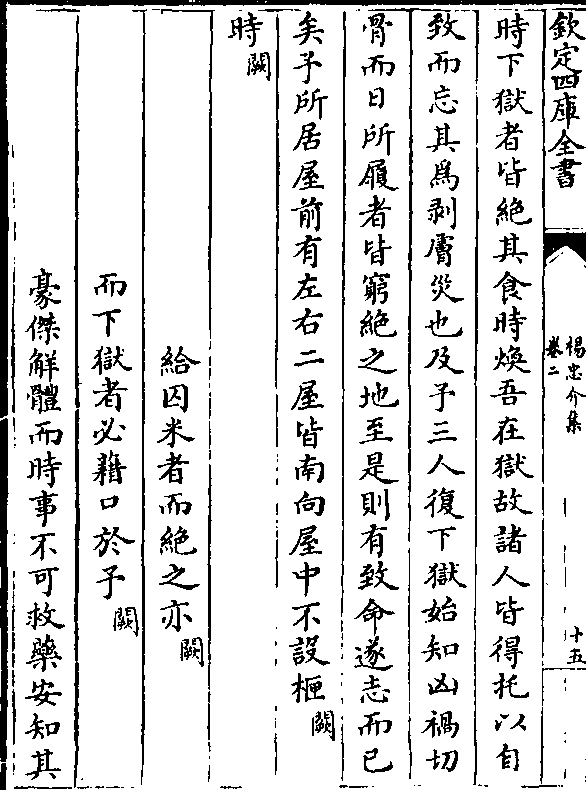 欽定四庫全書
楊忠介集
卷二
十五
時下獄者皆絶其食時煥吾在獄故諸人皆得托以自
致而忘其爲剥膚災也及予三人復下獄始知凶禍切
骨而日所履者皆窮絶之地至是則有致命遂志而已
矣予所居屋前有左右二屋皆南向屋中不設柙闕
時闕
給囚米者而絶之亦闕
而下獄者必藉口於予闕
豪傑解體而時事不可救藥安知其